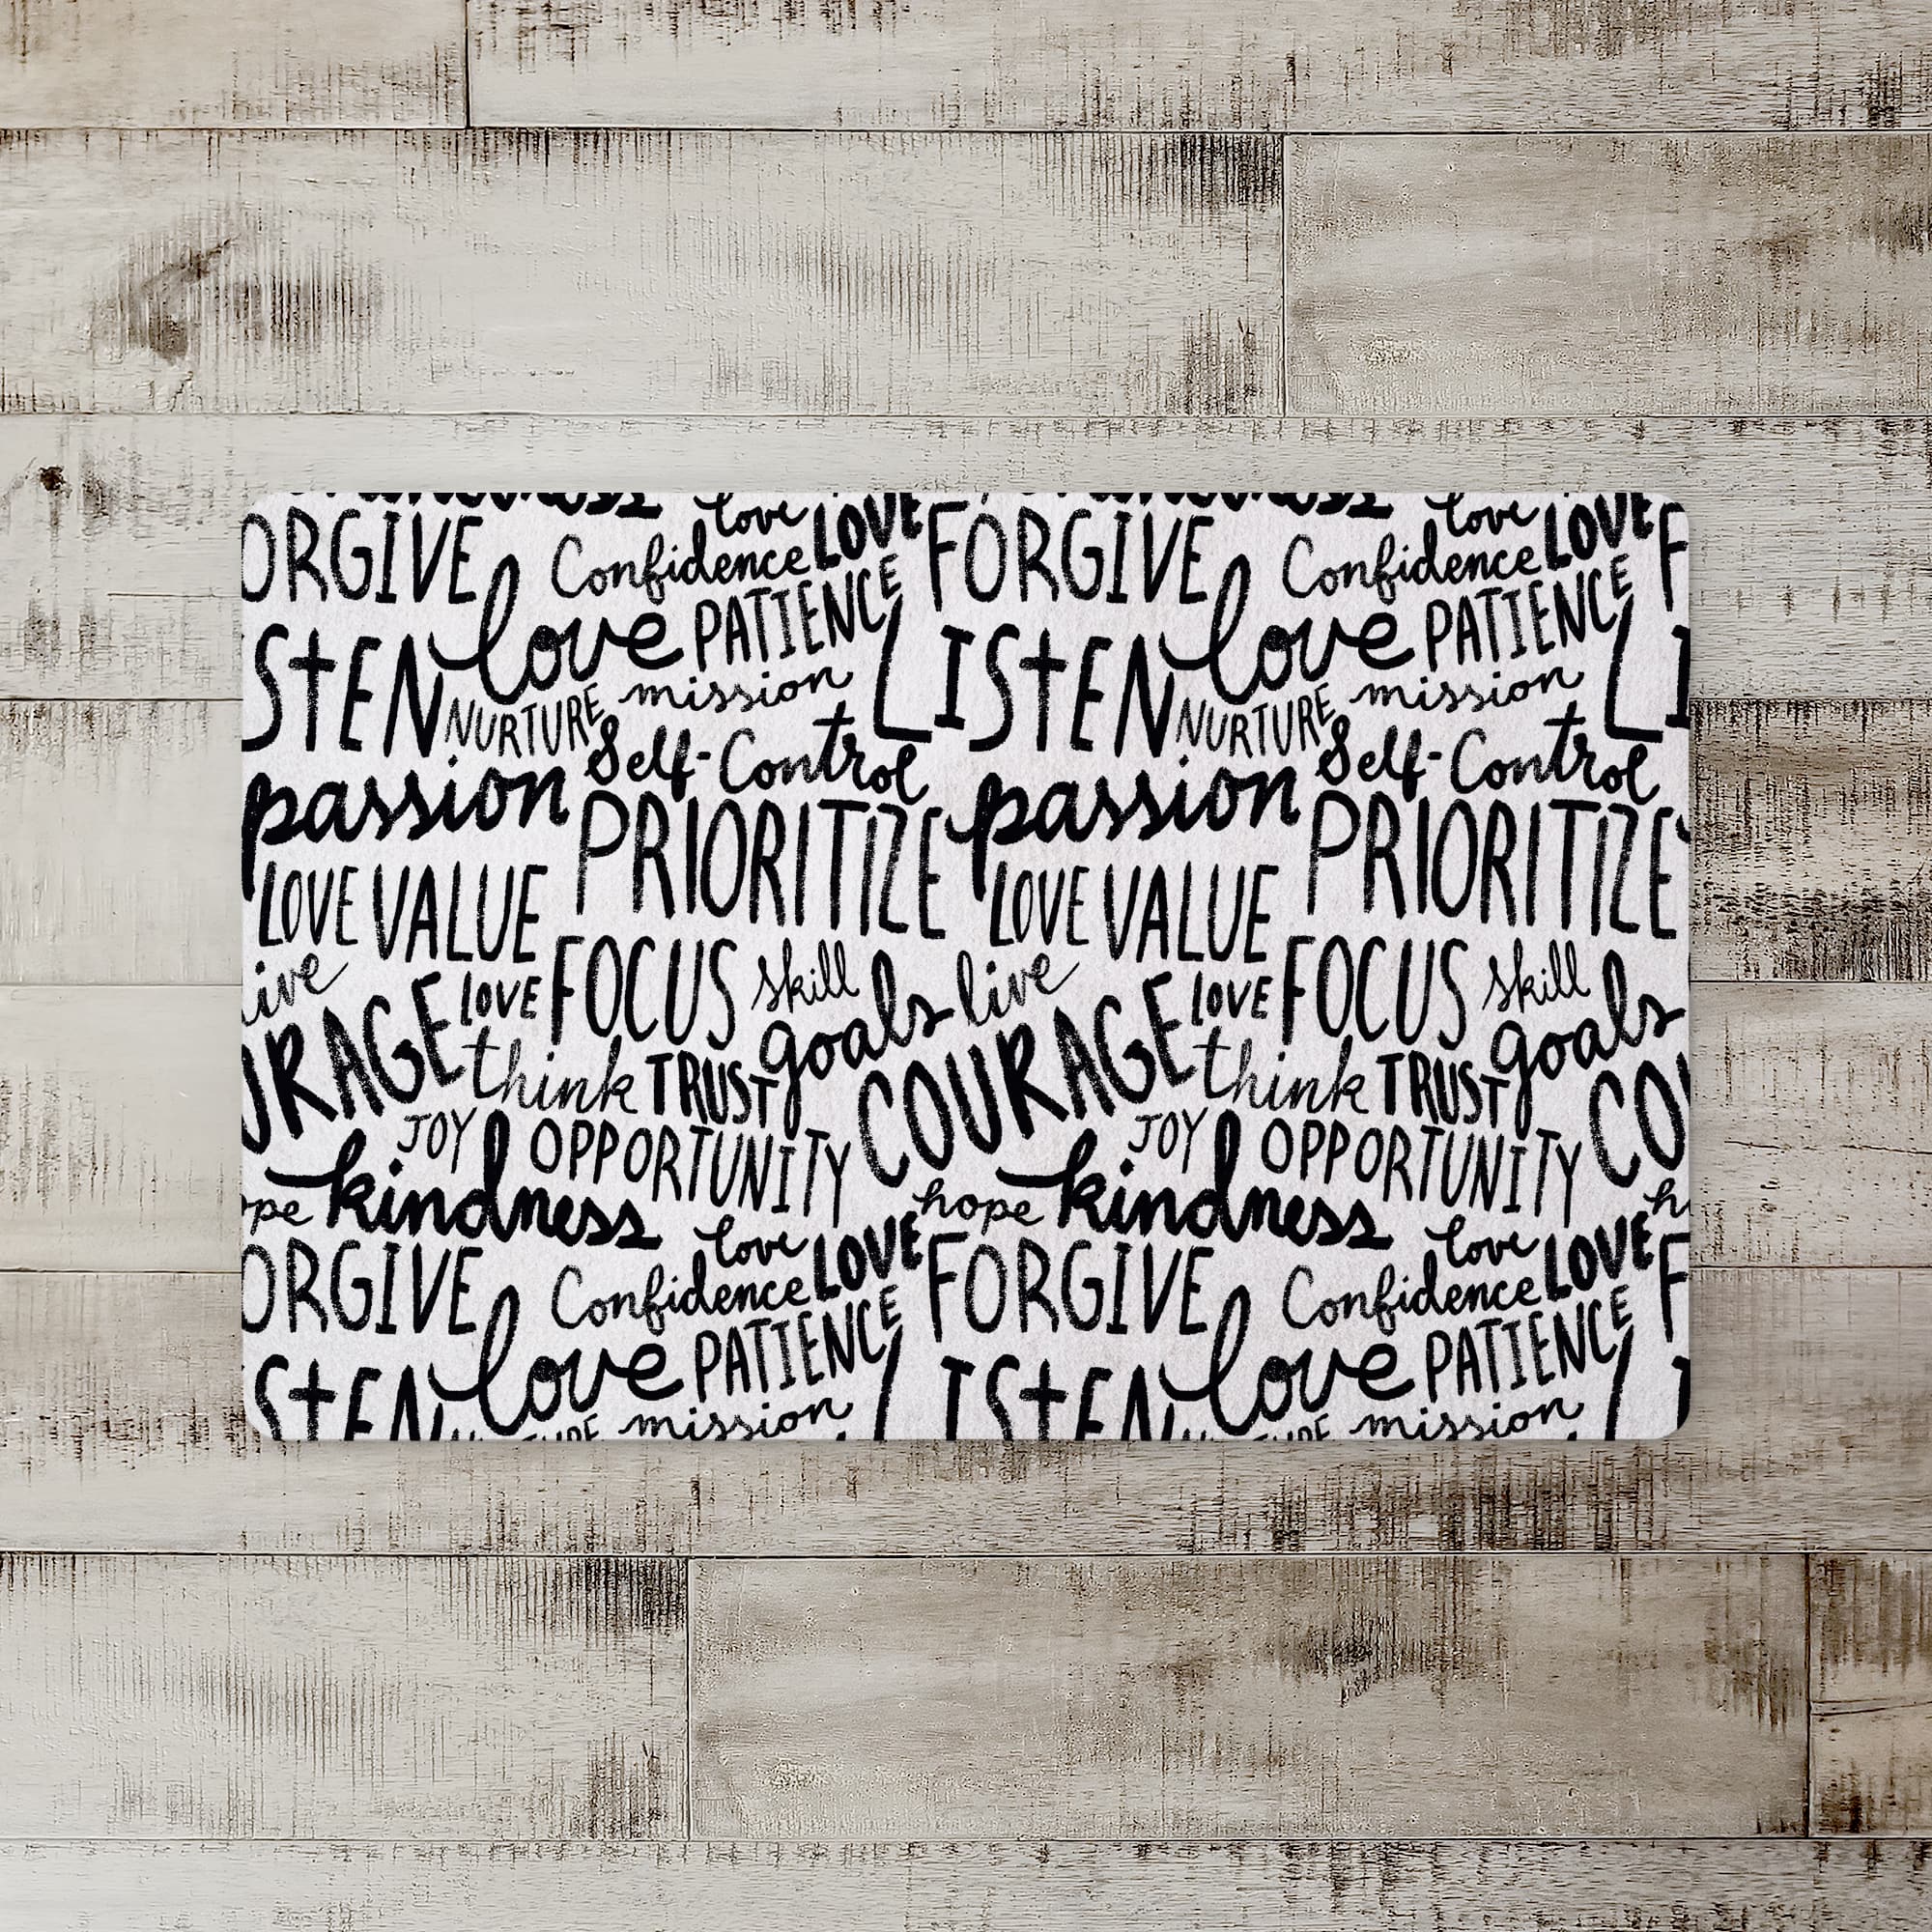 love LOVE love LOVE
ORGIVE Confidence FORGIVE Confidence F
love PATIENCE love PATIENCE
STEN LISTEN LI
NURTURE mission NURTURE mission
Self-Control Self-Control
passion passion
PRIORITIZE PRIORITIZE
LOVE VALUE LOVE VALUE
ive LOVE FOCUS skill live LOVE FOCUS skill
goals goals
URAGE think TRUST COURAGE think TRUST COU
JOY OPPORTUNITY JOY OPPORTUNITY
pe kindness hope kindness h
love LOVE love LOVE
ORGIVE Confidence FORGIVE Confidence F
love PATIENCE love PATIENCE
STEN LISTEN
mission mission